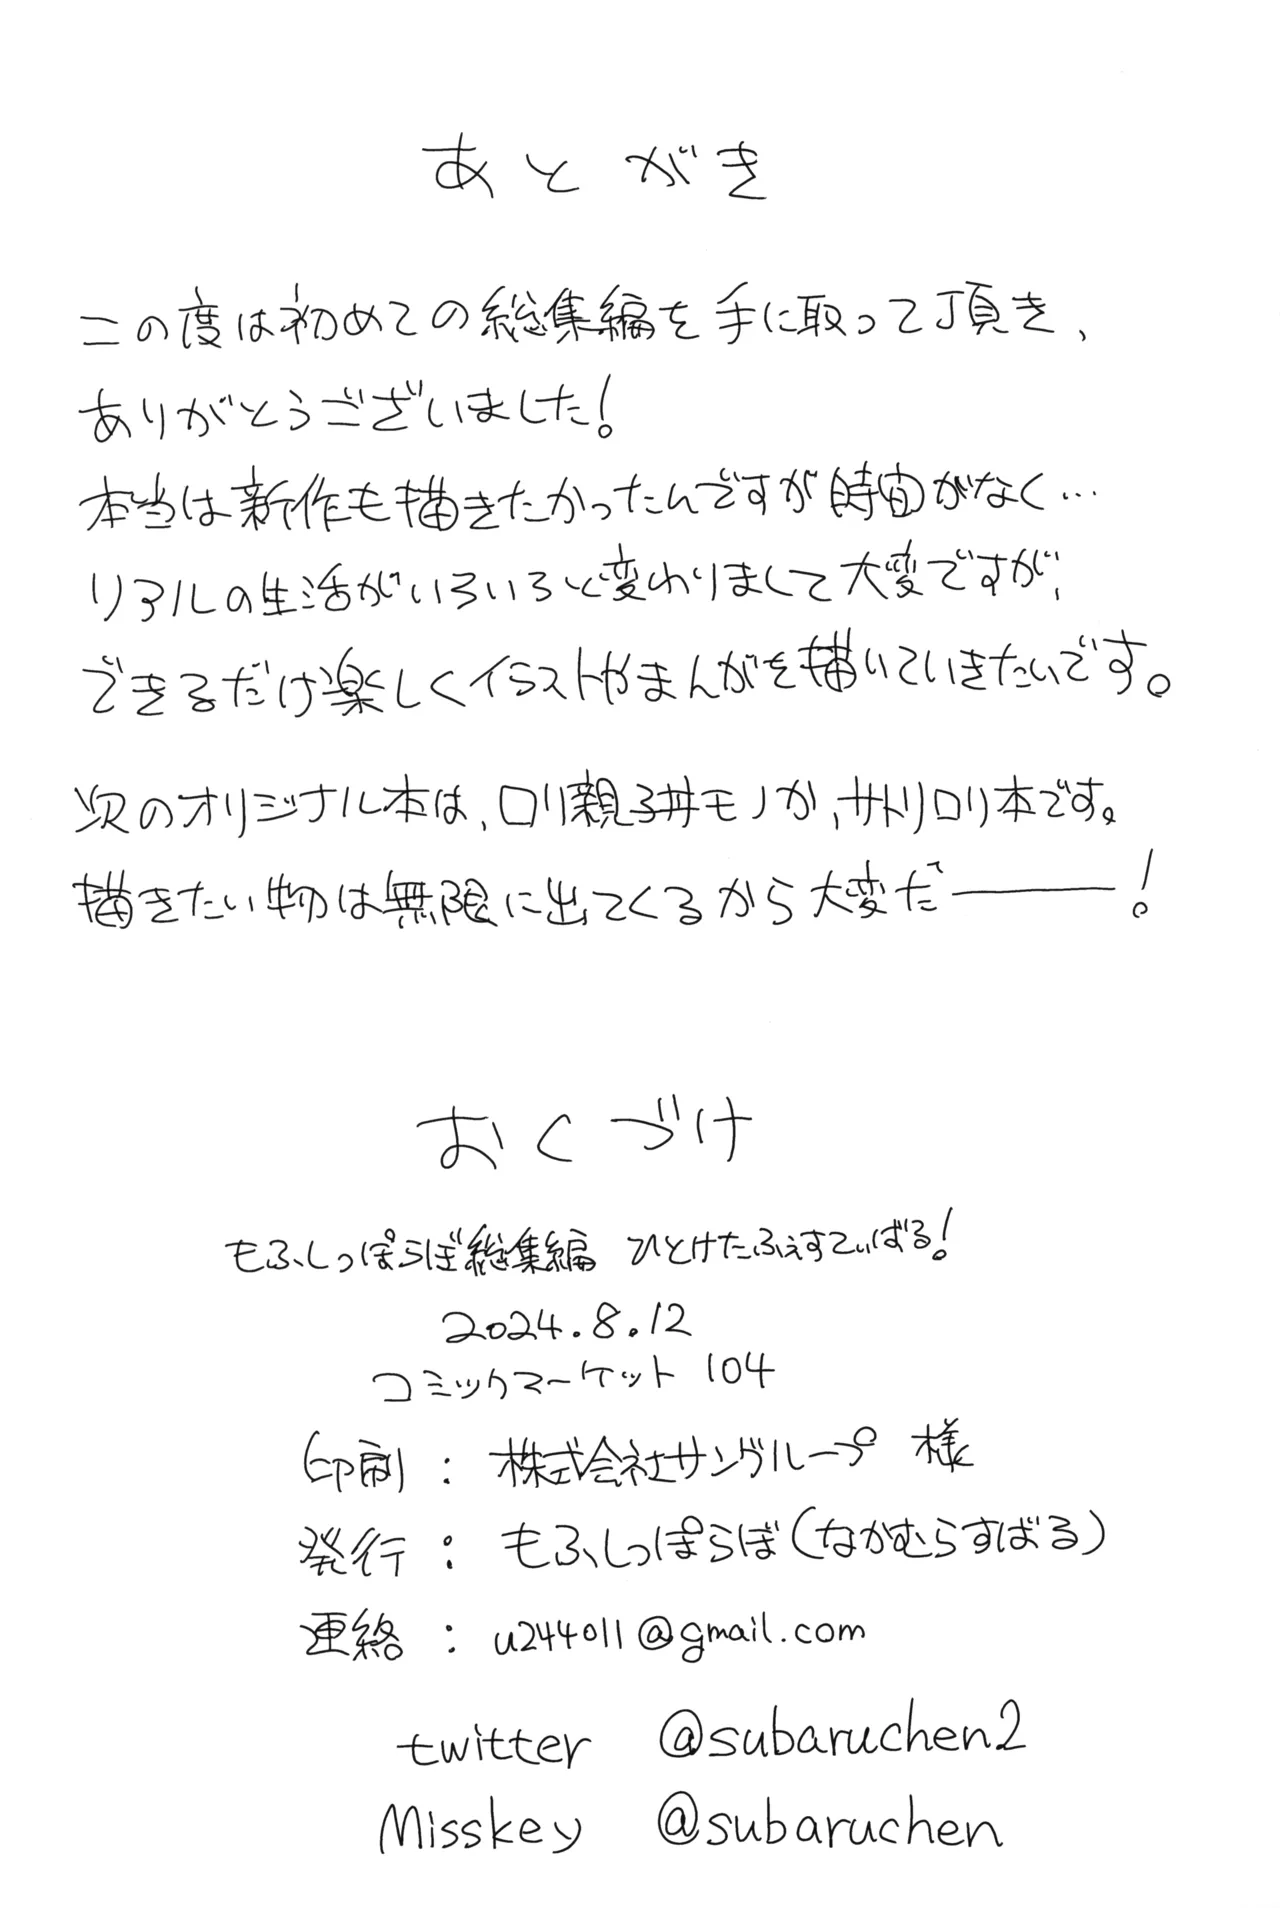 あとがき
この度は初めての総集編を手に取って頂き、
ありがとうございました!
本当は新作も描きたかったんですが時間がなく…
リアルの生活がいろいろと変わりまして大変ですが、
できるだけ楽しくイラストやまんがを描いていきたいです。
次のオリジナル本は、ロリ親子丼モノか、サトリロリ本です。
描きたい物は無限に出てくるから大変だ―――!
おくづけ
もふしっぽらぼ総集編 ひとけたふぇすてぃばる!
2024.8.12
コミックマーケット 104
印刷 : 株式会社サングループ 様
発行 : もふしっぽらぼ(なかむらすばる)
連絡 : u244011@gmail.com
twitter @subaruchen2
Misskey @subaruchen